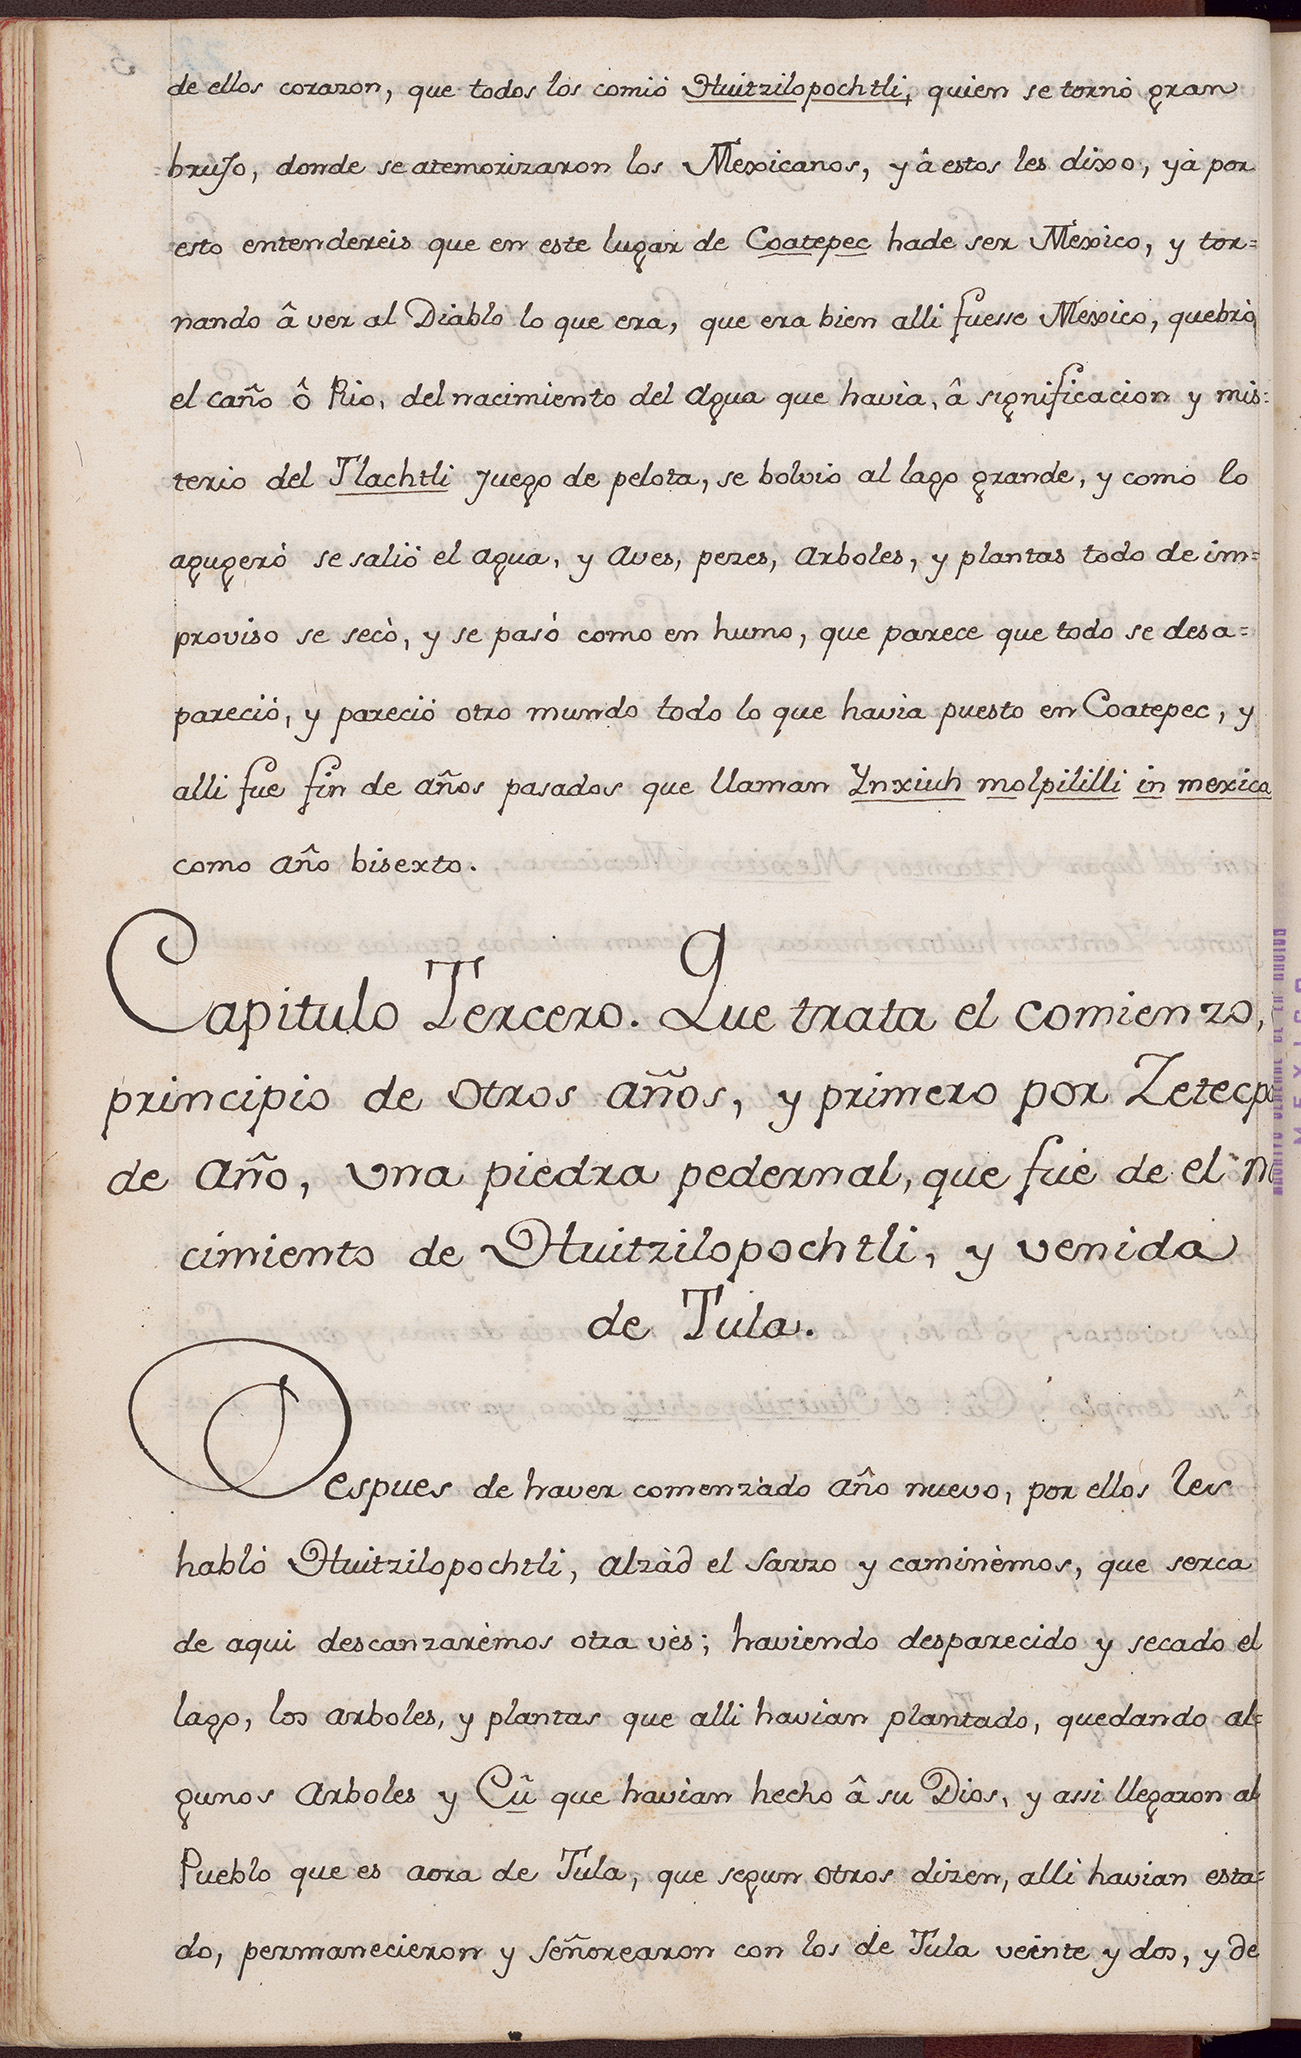 de ellos corazon, que todos los comió Huitzilopochtli, quien se tornò gran
brujo, donde se atemorizaron los Mexicanos, y â estos les dixo, yà por
esto entendereis que en este lugar de Coatepec hade ser Mexico, y tor=
nando â ver al Diablo lo que era, que era bien alli fuesse Mexico, quebrò
el caño ô Rio, del nacimiento del agua que havia, â significacion y mis=
terio del Tlachtli juego de pelota, se bolvio al lago grande, y como lo
agugerò se salió el agua, y Aves, pezes, Arboles, y plantas todo de im=
proviso se secò, y se pasó como en humo, que parece que todo se desa=
pareció, y pareció otro mundo todo lo que havia puesto en Coatepec, y
alli fue fin de años pasados que llaman Ynxiuh molpililli in mexica
como año bisexto.
Capitulo Tercero. Que trata el comienzo,
principio de otros años, y primero por Zetecpa
de año, una piedra pedernal, que fuè de el na
cimiento de Huitzilopochtli, y venida
de Tula.
Despues de haver comenzàdo año nuevo, por ellos les
habló Huitzilopochtli, alzàd el sarzo y caminèmos, que serca
de aqui descanzarèmos otra vès; haviendo desparecido y secado el
lago, los arboles, y plantas que alli havian plantado, quedando al=
gunos Arboles y Cû que havian hecho â su Dios, y assi llegaron al
Pueblo que es aora de Tula, que segun otros dizen, alli havian esta=
do, permanecieron y señorearon con los de Tula veinte y dos, y de